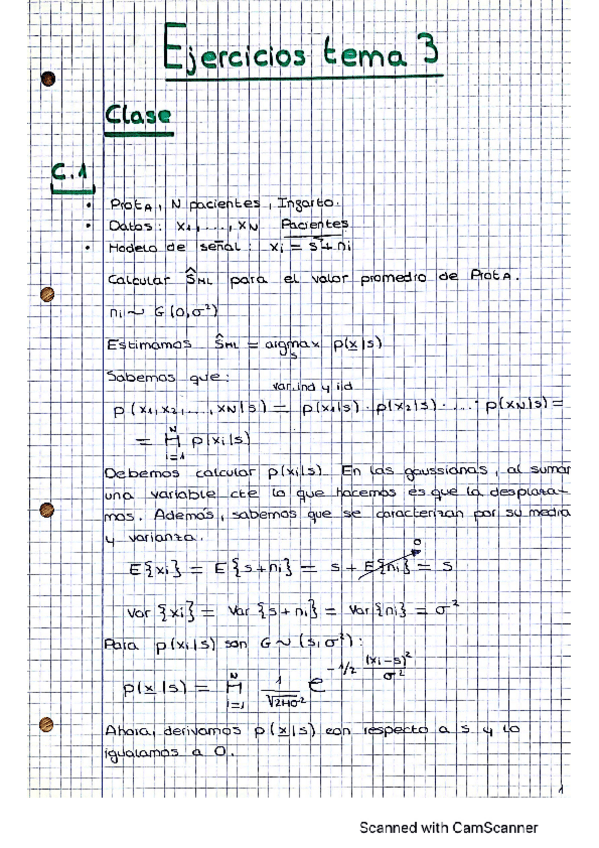 Ejercicios tema 3
Clase
C.1
• ProtA, N pacientes, Ingarto.
• Datos: x1, ..., xN Pacientes
• Modelo de señal: xi = s + ni
Calcular ŝML para el valor promedio de ProtA.
ni ~ G(0,σ²)
Estimamos ŝML = argmax_s p(x|s)
Sabemos que:
var.ind y id
p(x1,x2,...,xN|s) = p(x1|s) · p(x2|s) · ... · p(xN|s) =
= ∏_{i=1}^{N} p(xi|s)
Debemos calcular p(xi|s). En las gaussianas, al sumar
una variable cte lo que hacemos es que la desplaza-
mos. Además, sabemos que se caracterizan por su media
y varianza.
E{xi} = E{s+ni} = s + E{ni} = s
0
Var{xi} = Var{s+ni} = Var{ni} = σ²
Para p(xi|s) son G~(s,σ²):
p(x|s) = ∏_{i=1}^{N} 1/√(2πσ²) e^{-1/2 (xi-s)²/σ²}
Ahora, derivamos p(x|s) con respecto a s y lo
igualamos a 0.
1
Scanned with CamScanner